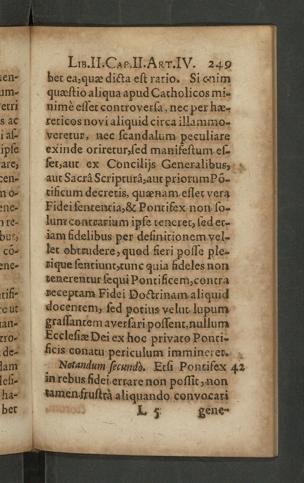 LIB. II. CAP. II. ART. IV. 249
bet ea, quæ dicta est ratio. Si enim
quæstio aliqua apud Catholicos mi-
nimè esset controversa, nec per hæ-
reticos novi aliquid circa illam mo-
veretur, nec scandalum peculiare
exinde oriretur, sed manifestum es-
set, aut ex Concilijs Generalibus,
aut Sacrâ Scripturâ, aut priorum Põ-
tificum decretis, quænam esset vera
Fidei sententia, & Pontifex non so-
lum contrarium ipse teneret, sed et-
iam fidelibus per definitionem vel-
let obtrudere, quod fieri posse ple-
rique sentiunt, tunc quia fideles non
tenerentur sequi Pontificem, contra
receptam Fidei Doctrinam aliquid
docentem, sed potius velut lupum
grassantem aversari possent, nullum
Ecclesiæ Dei ex hoc privato Ponti-
ficis conatu periculum immineret.
Notandum secundò. Etsi Pontifex 42
in rebus fidei errare non possit, non
tamen frustrà aliquando convocati
L 5 gene-